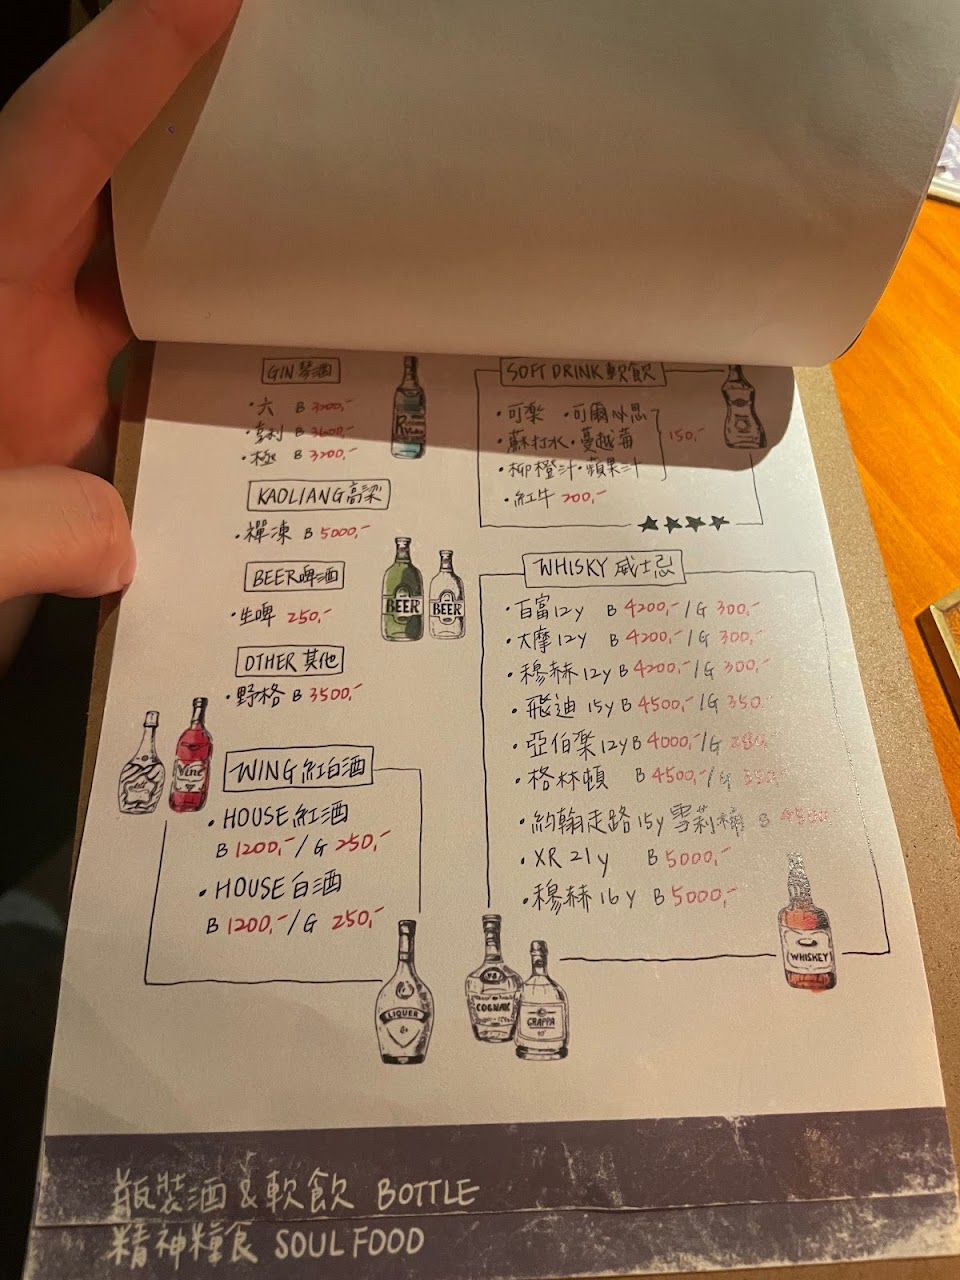 GIN 琴酒
·六 B 3200,-
·亨利 B 3600,-
·極 B 3200,-
KAOLIANG 高梁
·禪凍 B 5000,-
BEER 啤酒
·生啤 250,-
OTHER 其他
·野格 B 3500,-
WING 紅白酒
·HOUSE 紅酒
B 1200,- / G 250,-
·HOUSE 白酒
B 1200,- / G 250,-
SOFT DRINK 軟飲
·可樂 ·可爾必思
·蘇打水 ·蔓越莓 150,-
·柳橙汁 ·蘋果汁
·紅牛 200,-
WHISKY 威士忌
·百富 12y B 4200,- / G 300,-
·大摩 12y B 4200,- / G 300,-
·穆赫 12y B 4200,- / G 300,-
·飛迪 15y B 4500,- / G 350,-
·亞伯樂 12y B 4000,- / G
·格林頓 B 4500,- / G 350,-
·約翰走路 15y 雪莉桶 B
·XR 21y B 5000,-
·穆赫 16y B 5000,-
BEER
BEER
Vine
LIQUER
COGNAK
GRAPPA
WHISKEY
瓶裝酒 & 軟飲 BOTTLE
精神糧食 SOUL FOOD